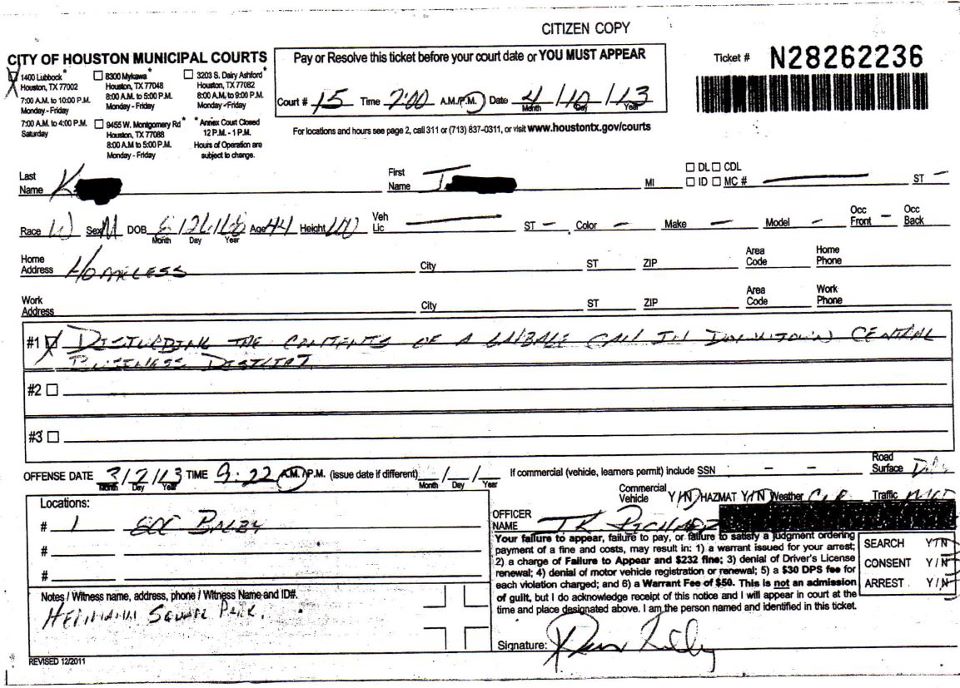 CITIZEN COPY
CITY OF HOUSTON MUNICIPAL COURTS
1400 Lubbock*
Houston, TX 77002
7:00 A.M. to 10:00 P.M.
Monday - Friday
7:00 A.M. to 4:00 P.M.
Saturday
8300 Mykawa*
Houston, TX 77048
8:00 A.M. to 5:00 P.M.
Monday - Friday
9455 W. Montgomery Rd*
Houston, TX 77088
8:00 A.M to 5:00 P.M.
Monday - Friday
3203 S. Dairy Ashford*
Houston, TX 77082
8:00 A.M. to 9:00 P.M.
Monday - Friday
* Annex Court Closed
12 P.M. - 1 P.M.
Hours of Operation are
subject to change.
Pay or Resolve this ticket before your court date or YOU MUST APPEAR
Court # 15 Time 2:00 A.M./P.M. Date 4/10/13
Month Day Year
For locations and hours see page 2, call 311 or (713) 837-0311, or visit www.houstontx.gov/courts
Ticket # N28262236
Last Name K
First Name T
MI
DL CDL
ID MC #
ST -
Race W Sex M DOB Age 44 Height
Month Day Year
Veh Lic
ST - Color - Make - Model - Occ Front - Occ Back
Home Address Homeless City ST ZIP Area Code Home Phone
Work Address City ST ZIP Area Code Work Phone
#1 DISTURBING THE CONTENTS OF A GARBAGE CAN IN DOWNTOWN CENTRAL
BUSINESS DISTRICT
#2
#3
OFFENSE DATE 3/7/13 TIME 9:22 A.M./P.M. (issue date if different) / /
Month Day Year Month Day Year
If commercial (vehicle, learners permit) include SSN - -
Road Surface Dry
Commercial Vehicle Y/N HAZMAT Y/N Weather CLR Traffic
Locations:
# 1 800 BAGBY
#
#
Notes / Witness name, address, phone / Witness Name and ID#.
HERMANN SQUARE PARK.
REVISED 12/2011
OFFICER NAME
Your failure to appear, failure to pay, or failure to satisfy a judgment ordering
payment of a fine and costs, may result in: 1) a warrant issued for your arrest;
2) a charge of Failure to Appear and $232 fine; 3) denial of Driver's License
renewal; 4) denial of motor vehicle registration or renewal; 5) a $30 DPS fee for
each violation charged; and 6) a Warrant Fee of $50. This is not an admission
of guilt, but I do acknowledge receipt of this notice and I will appear in court at the
time and place designated above. I am the person named and identified in this ticket.
Signature:
SEARCH Y/N
CONSENT Y/N
ARREST Y/N